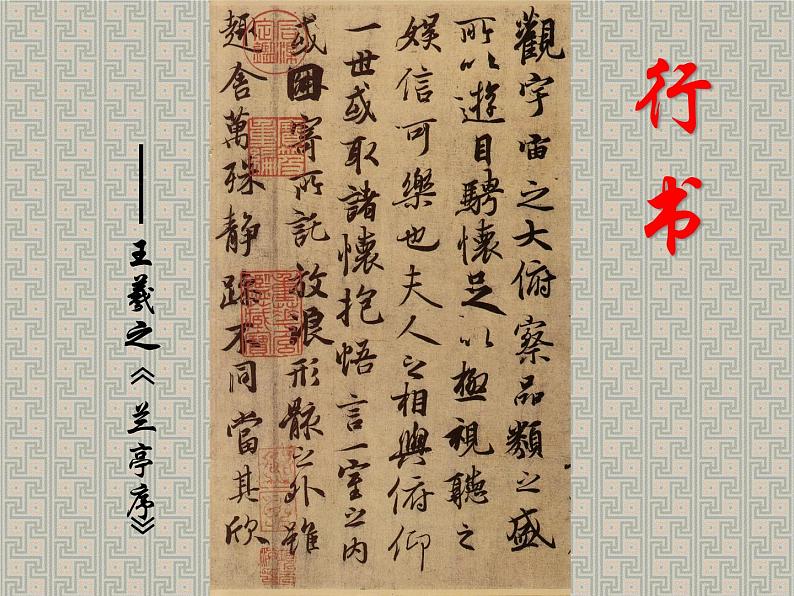 行书
觀宇宙之大俯察品類之盛
所以遊目騁懷足以極視聽之
娛信可樂也夫人之相與俯仰
一世或取諸懷抱悟言一室之內
或因寄所託放浪形骸之外雖
趣舍萬殊靜躁不同當其欣
——王羲之《兰亭序》